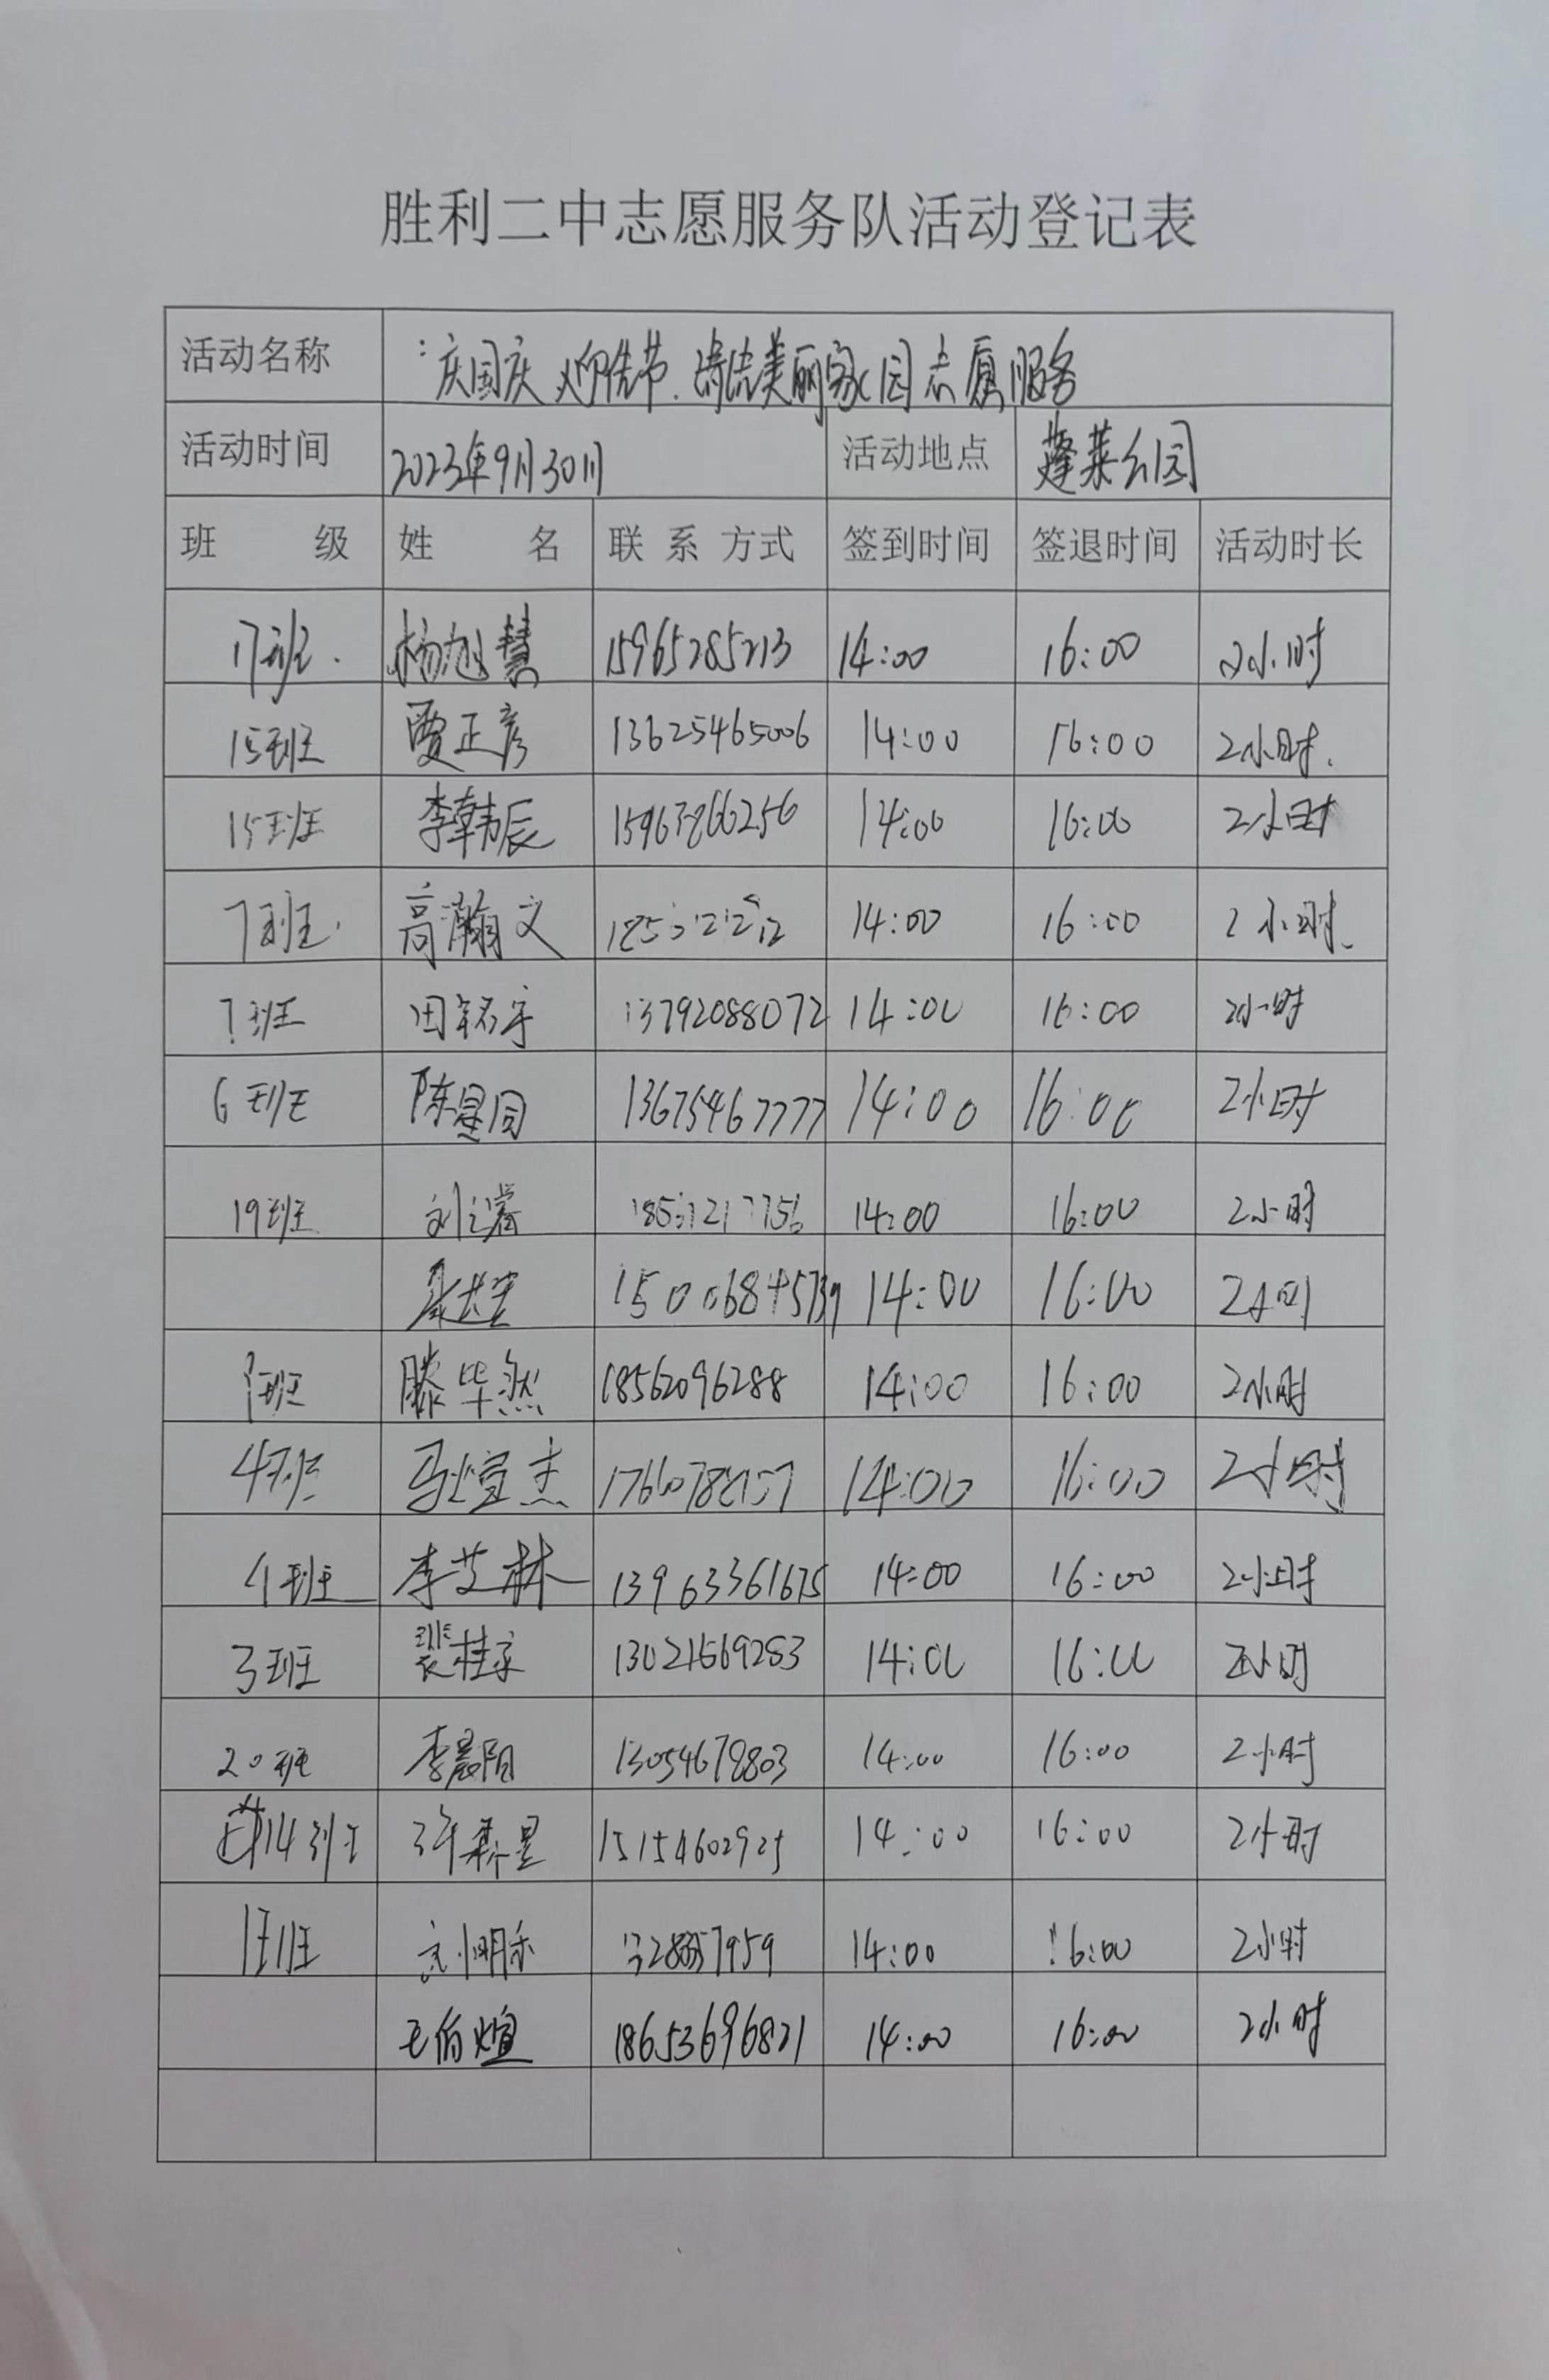 胜利二中志愿服务队活动登记表
活动名称 庆国庆 迎佳节 美丽家园志愿服务
活动时间 2023年9月30日 活动地点 蓬莱公园
班 级 姓 名 联系方式 签到时间 签退时间 活动时长
17班. 杨旭慧 15965285213 14:00 16:00 2小时
15班 贾正彦 13625465006 14:00 16:00 2小时.
15班 李韩辰 14:00 16:00 2小时
7班. 高瀚文 14:00 16:00 2小时
7班 田铭宇 13792088072 14:00 16:00 2小时
6班 陈星同 13675467777 14:00 16:00 2小时
19班 14:00 16:00 2小时
14:00 16:00
滕毕然 18562096288 14:00 16:00 2小时
4班 马煊杰 14:00 16:00 2小时
4班 李艾林 13963361675 14:00 16:00 2小时
3班 裴桂宇 13021569283 14:00 16:00 2小时
20班 李晨阳 13054679803 14:00 16:00 2小时
14班 15154602925 14:00 16:00 2小时
14:00 16:00 2小时
王伯煊 18653696821 14:00 16:00 2小时